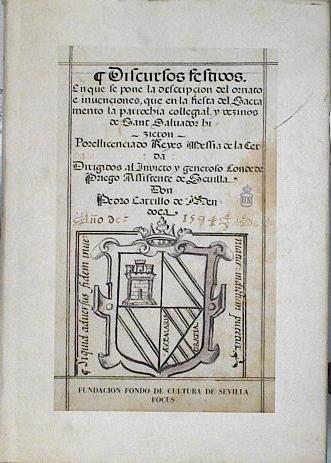 ¶ Discursos festivos.
En que se pone la descripcion del ornato
e invenciones, que en la fiesta del Sacra
mento la parrochia collegial, y vezinos
de Sant Saluador hi
zieron
Por el licenciado Reyes Messia de la Cer
da
Dirigidos al Invicto y generoso Conde de
Priego Assistente de Sevilla.
Don
Pedro Carrillo de Men
doca
Año de 1594
¶ Siquid aduersus fidem inue
FUNDACION FONDO DE CULTURA DE SEVILLA
FOCUS